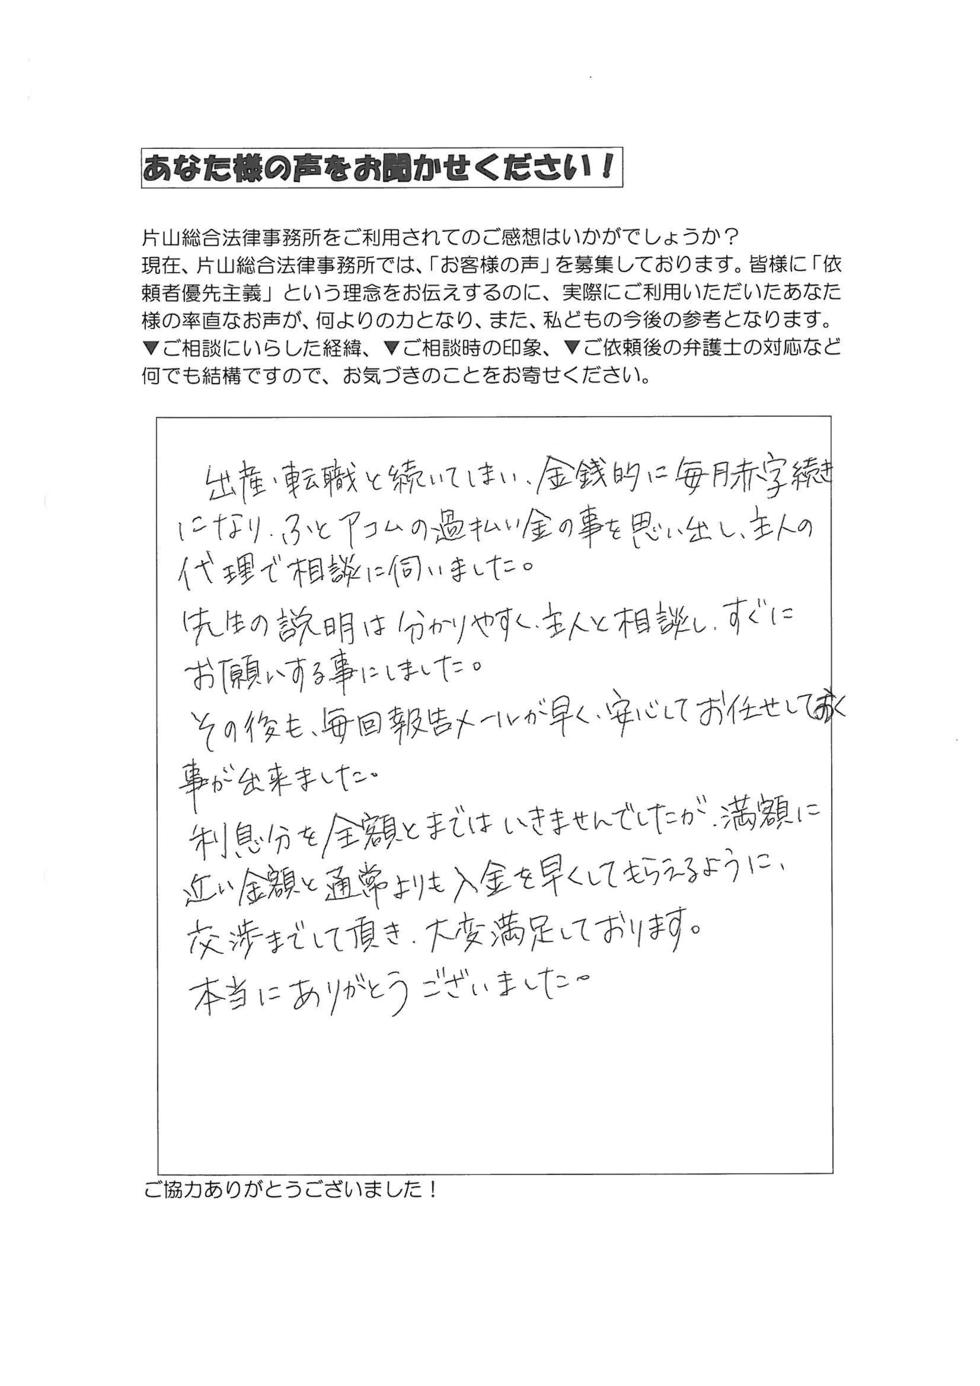 あなた様の声をお聞かせください！
片山総合法律事務所をご利用されてのご感想はいかがでしょうか？
現在、片山総合法律事務所では、「お客様の声」を募集しております。皆様に「依
頼者優先主義」という理念をお伝えするのに、実際にご利用いただいたあなた
様の率直なお声が、何よりの力となり、また、私どもの今後の参考となります。
▼ご相談にいらした経緯、▼ご相談時の印象、▼ご依頼後の弁護士の対応など
何でも結構ですので、お気づきのことをお寄せください。
出産、転職と続いてしまい、金銭的に毎月赤字続き
になり、ふとアコムの過払い金の事を思い出し、主人の
代理で相談に伺いました。
先生の説明は分かりやすく、主人と相談し、すぐに
お願いする事にしました。
その後も、毎回報告メールが早く、安心してお任せしておく
事が出来ました。
利息分を全額とまではいきませんでしたが、満額に
近い金額と通常よりも入金を早くしてもらえるように、
交渉までして頂き、大変満足しております。
本当にありがとうございました。
ご協力ありがとうございました！